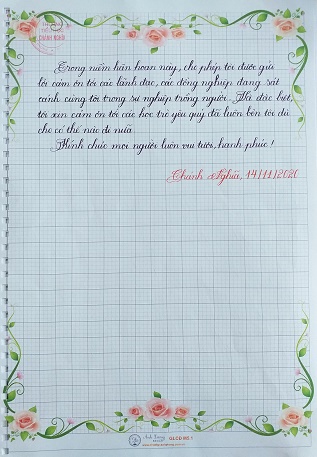 CHÁNH NGHĨA
Trong niềm hân hoan này, cho phép tôi được gửi
lời cảm ơn tới các lãnh đạo, các đồng nghiệp đang sát
cánh cùng tôi trong sự nghiệp trồng người. Và đặc biệt,
tôi xin cảm ơn tới các học trò yêu quý đã luôn bên tôi dù
cho có thế nào đi nữa.
Kính chúc mọi người luôn vui tươi, hạnh phúc!
Chánh Nghĩa, 14/11/2020
Ánh Dương
GLCD MS 1